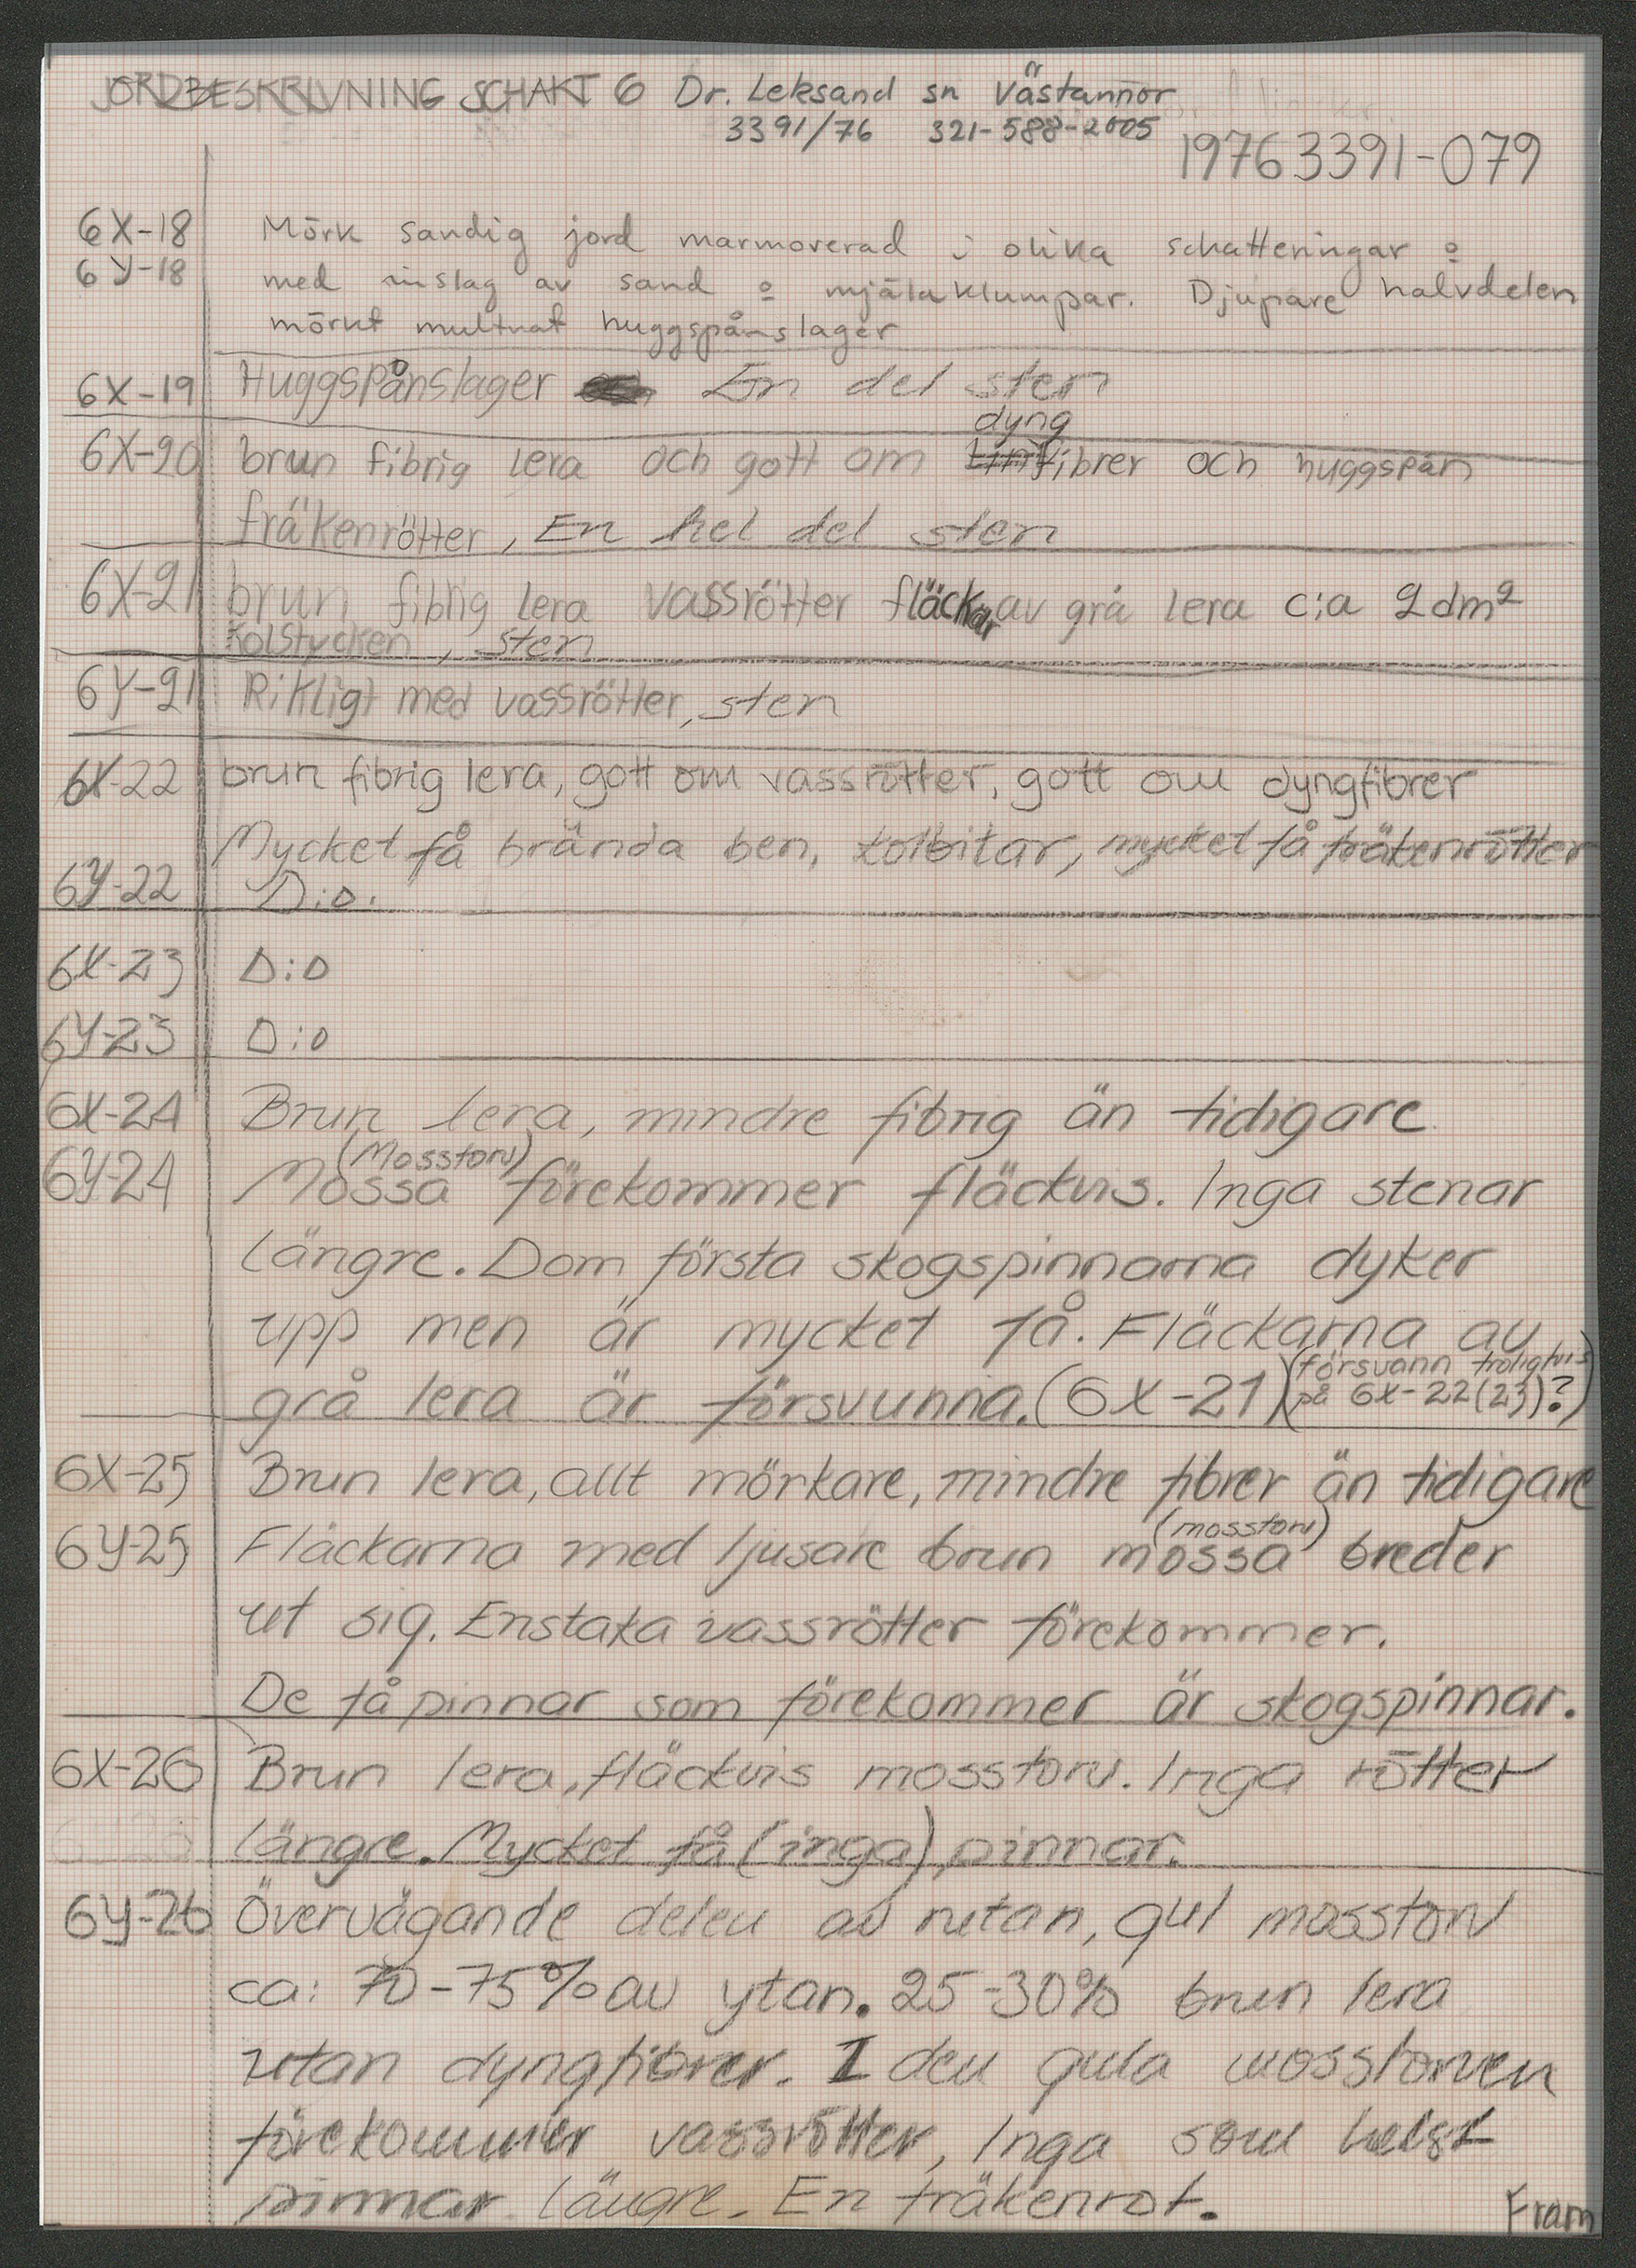 JORDBESKRIVNING SCHAKT 6 Dr. Leksand sn Västannor
3391/76 321-588-2005
19763391-079
6X-18 Mörk sandig jord marmorerad i olika schatteringar o
6Y-18 med inslag av sand o mjälaklumpar. Djupare halvdelen
mörkt multnat huggspånslager
6X-19 Huggspånslager En del sten
dyng
6X-20 brun fibrig lera och gott om fibrer och huggspån
fräkenrötter, En hel del sten
6X-21 brun fibrig lera vassrötter fläckar av grå lera c:a 2 dm²
kolstycken, sten
6Y-21 Rikligt med vassrötter, sten
6X-22 brun fibrig lera, gott om vassrötter, gott om dyngfibrer
Mycket få brända ben, kolbitar, mycket få fräkenrötter
6Y-22 D:o.
6X-23 D:o
6Y-23 D:o
6X-24 Brun lera, mindre fibrig än tidigare.
(Mosstorv)
6Y-24 Mossa förekommer fläckvis. Inga stenar
längre. Dom första skogspinnarna dyker
upp men är mycket få. Fläckarna av
grå lera är försvunna. (6X-21) (försvann troligtvis
på 6X-22(23)?)
6X-25 Brun lera, allt mörkare, mindre fibrer än tidigare
(mosstorv)
6Y-25 Fläckarna med ljusare brun mossa breder
ut sig. Enstaka vassrötter förekommer.
De få pinnar som förekommer är skogspinnar.
6X-26 Brun lera, fläckvis mosstorv. Inga rötter
längre. Mycket få (inga) pinnar.
6Y-26 Övervägande delen av rutan, gul mosstorv
ca: 70-75% av ytan. 25-30% brun lera
utan dyngfibrer. I den gula mosstorven
förekommer vassrötter, Inga som helst
pinnar längre. En fräkenrot.
Fram